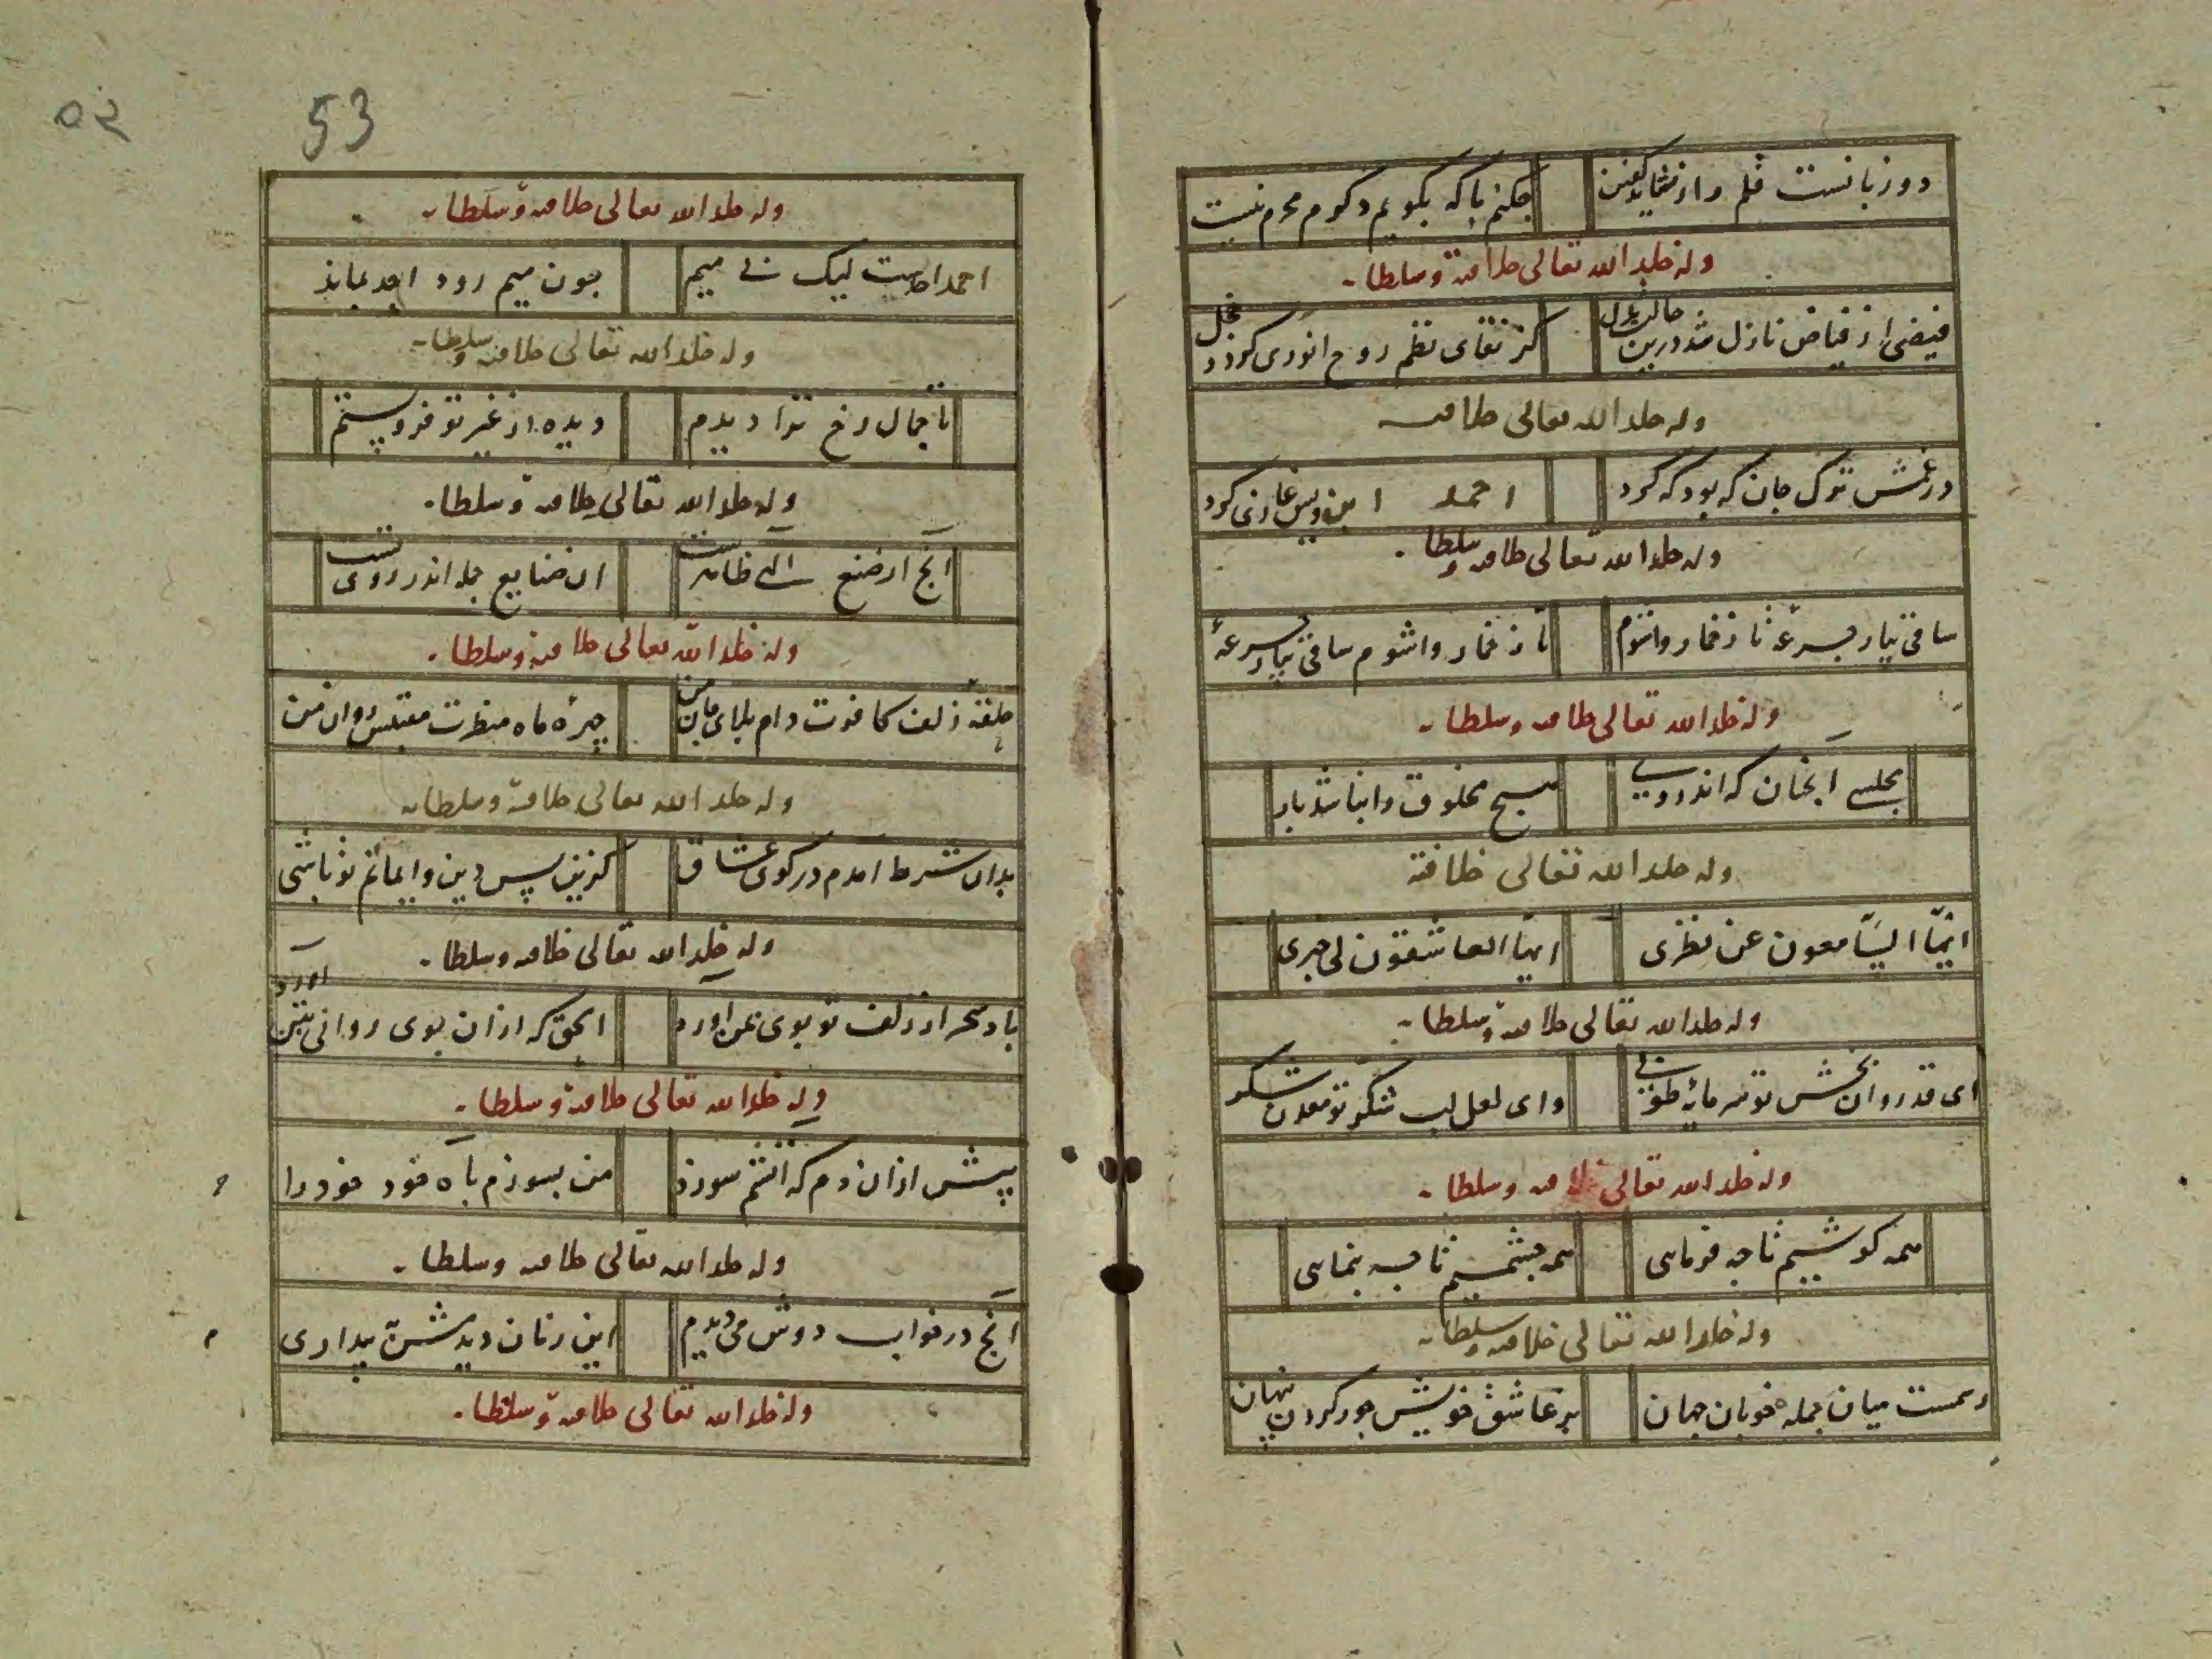 دو زبانست قلم راز نشاید گفتن چکنم با که بگویم دگرم محرم نیست
وله خلد الله تعالی خلافته وسلطانه
فیضی از فیاض نازل شد درین حالت بدل کز تقای نظم روح انوری کردد خجل
وله خلد الله تعالی خلافته
در غمش ترک جان که بود که کرد احمد ابن ویس غازی کرد
وله خلد الله تعالی خلافته وسلطانه
ساقی بیار جرعهٔ تا ز خمار واشوم تا ز خمار واشوم ساقی بیار جرعهٔ
وله خلد الله تعالی خلافته وسلطانه
مجلسی آنچنان که اندر وی هیچ مخلوق را نباشد بار
وله خلد الله تعالی خلافته
ایّها السّامعون عن نظری ایها العاشقون لی خبری
وله خلد الله تعالی خلافته وسلطانه
ای قد روان بخش تو سرمایهٔ طوبی وای لعل لب شکر تو معدن شکر
وله خلد الله تعالی خلافته وسلطانه
همه کوشیم تا چه فرمایی همه چشمیم تا چه بنمایی
وله خلد الله تعالی خلافته وسلطانه
رسمست میان جمله خوبان جهان بر عاشق خویش جور کردن پنهان
53
۵۳
وله خلد الله تعالی خلافته وسلطانه
احمد احدست لیک بی میم چون میم رود احد بماند
وله خلد الله تعالی خلافته وسلطانه
تا جمال رخ ترا دیدم دیده از غیر تو فرو بستم
وله خلد الله تعالی خلافته وسلطانه
آنچ از صنع الهی ظاهرست ان صنایع جمله اندر روی تست
وله خلد الله تعالی خلافته وسلطانه
حلقهٔ زلف کافرت دام بلای جان من چهرهٔ ماه منظرت مقتبس روان من
وله خلد الله تعالی خلافته وسلطانه
بدان شرط امدم در کوی عشاق کزین پس دین وایمانم تو باشی
وله خلد الله تعالی خلافته وسلطانه
باد سحر از زلف تو بوی بمن آورد الحق که ازان بوی روانی بتن آورد
وله خلد الله تعالی خلافته وسلطانه
پیش ازان دم که آتشم سوزد من بسوزم بآه خود خود را
وله خلد الله تعالی خلافته وسلطانه
آنچ در خواب دوش می دیدم این زمان دیدمش به بیداری
وله خلد الله تعالی خلافته وسلطانه